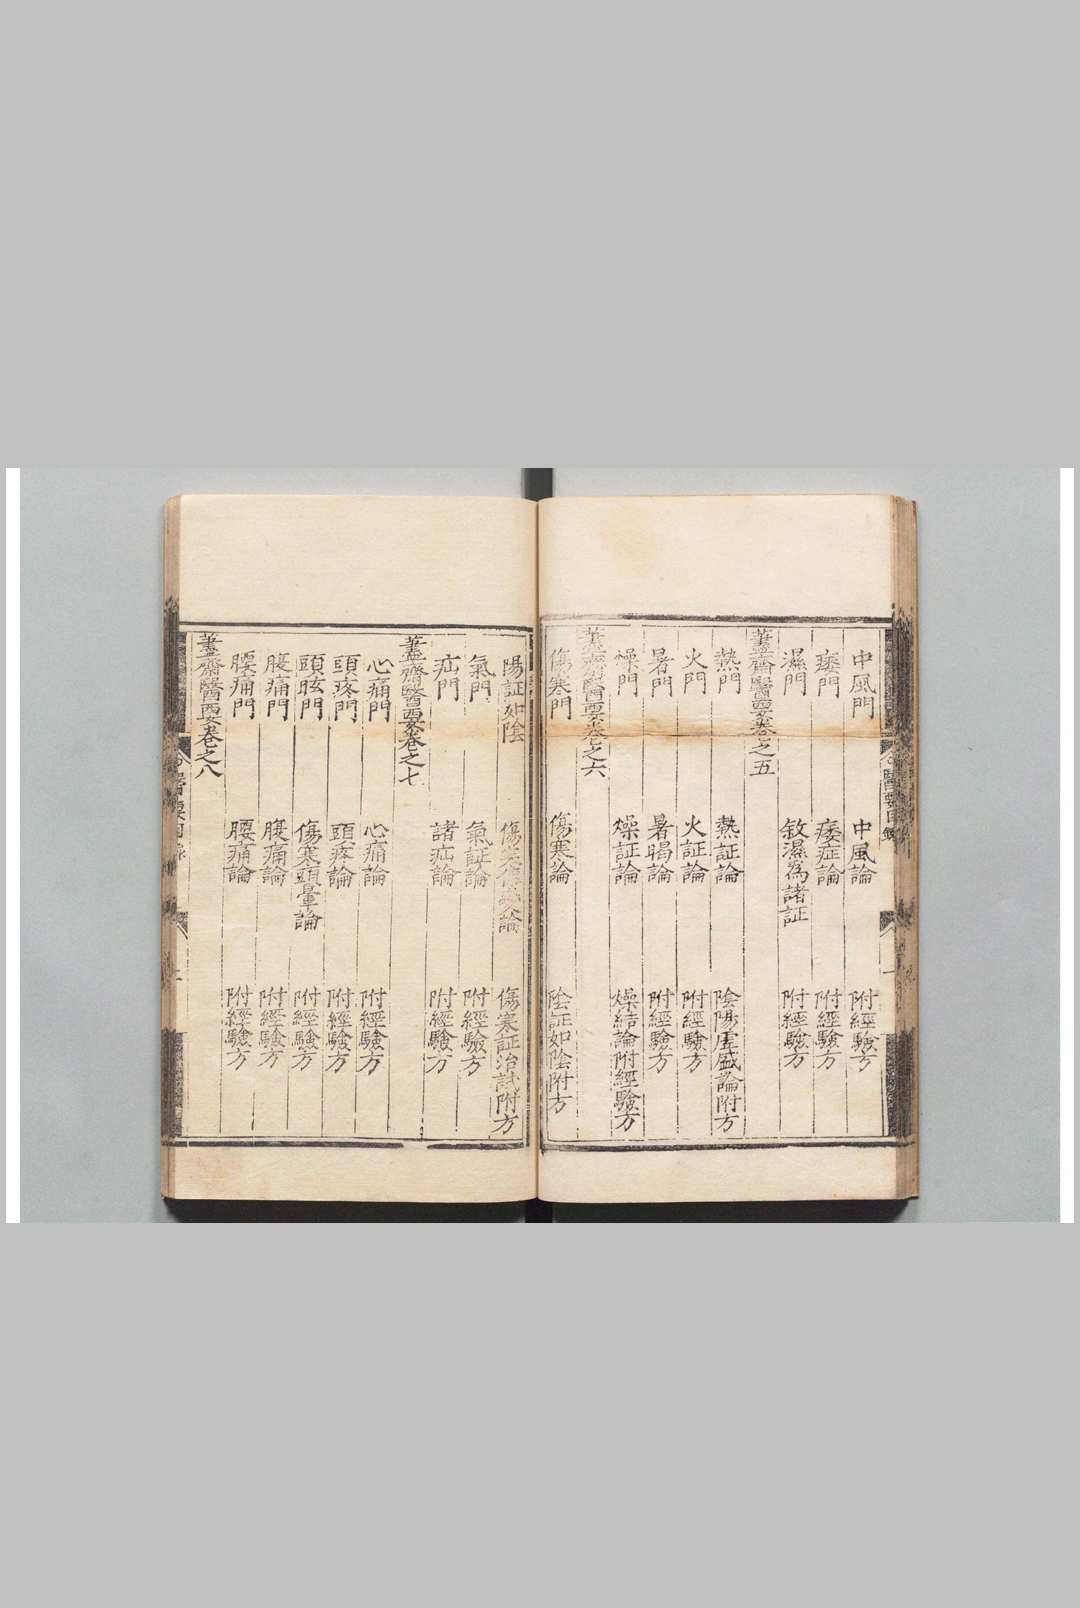 中風門 中風論 附經驗方
痿門 痿症論 附經驗方
濕門 敘濕為諸証 附經驗方
藎齋醫要卷之五
熱門 熱証論 陰陽虛盛論附方
火門 火証論 附經驗方
暑門 暑暍論 附經驗方
燥門 燥証論 燥結論附經驗方
藎齋醫要卷之六
傷寒門 傷寒論 陰証如陰附方
陽証如陰 傷寒 論 傷寒証治試附方
氣門 氣証論 附經驗方
疝門 諸疝論 附經驗方
藎齋醫要卷之七
心痛門 心痛論 附經驗方
頭疼門 頭疼論 附經驗方
頭眩門 傷寒頭暈論 附經驗方
腹痛門 腹痛論 附經驗方
腰痛門 腰痛論 附經驗方
藎齋醫要卷之八
醫要目錄